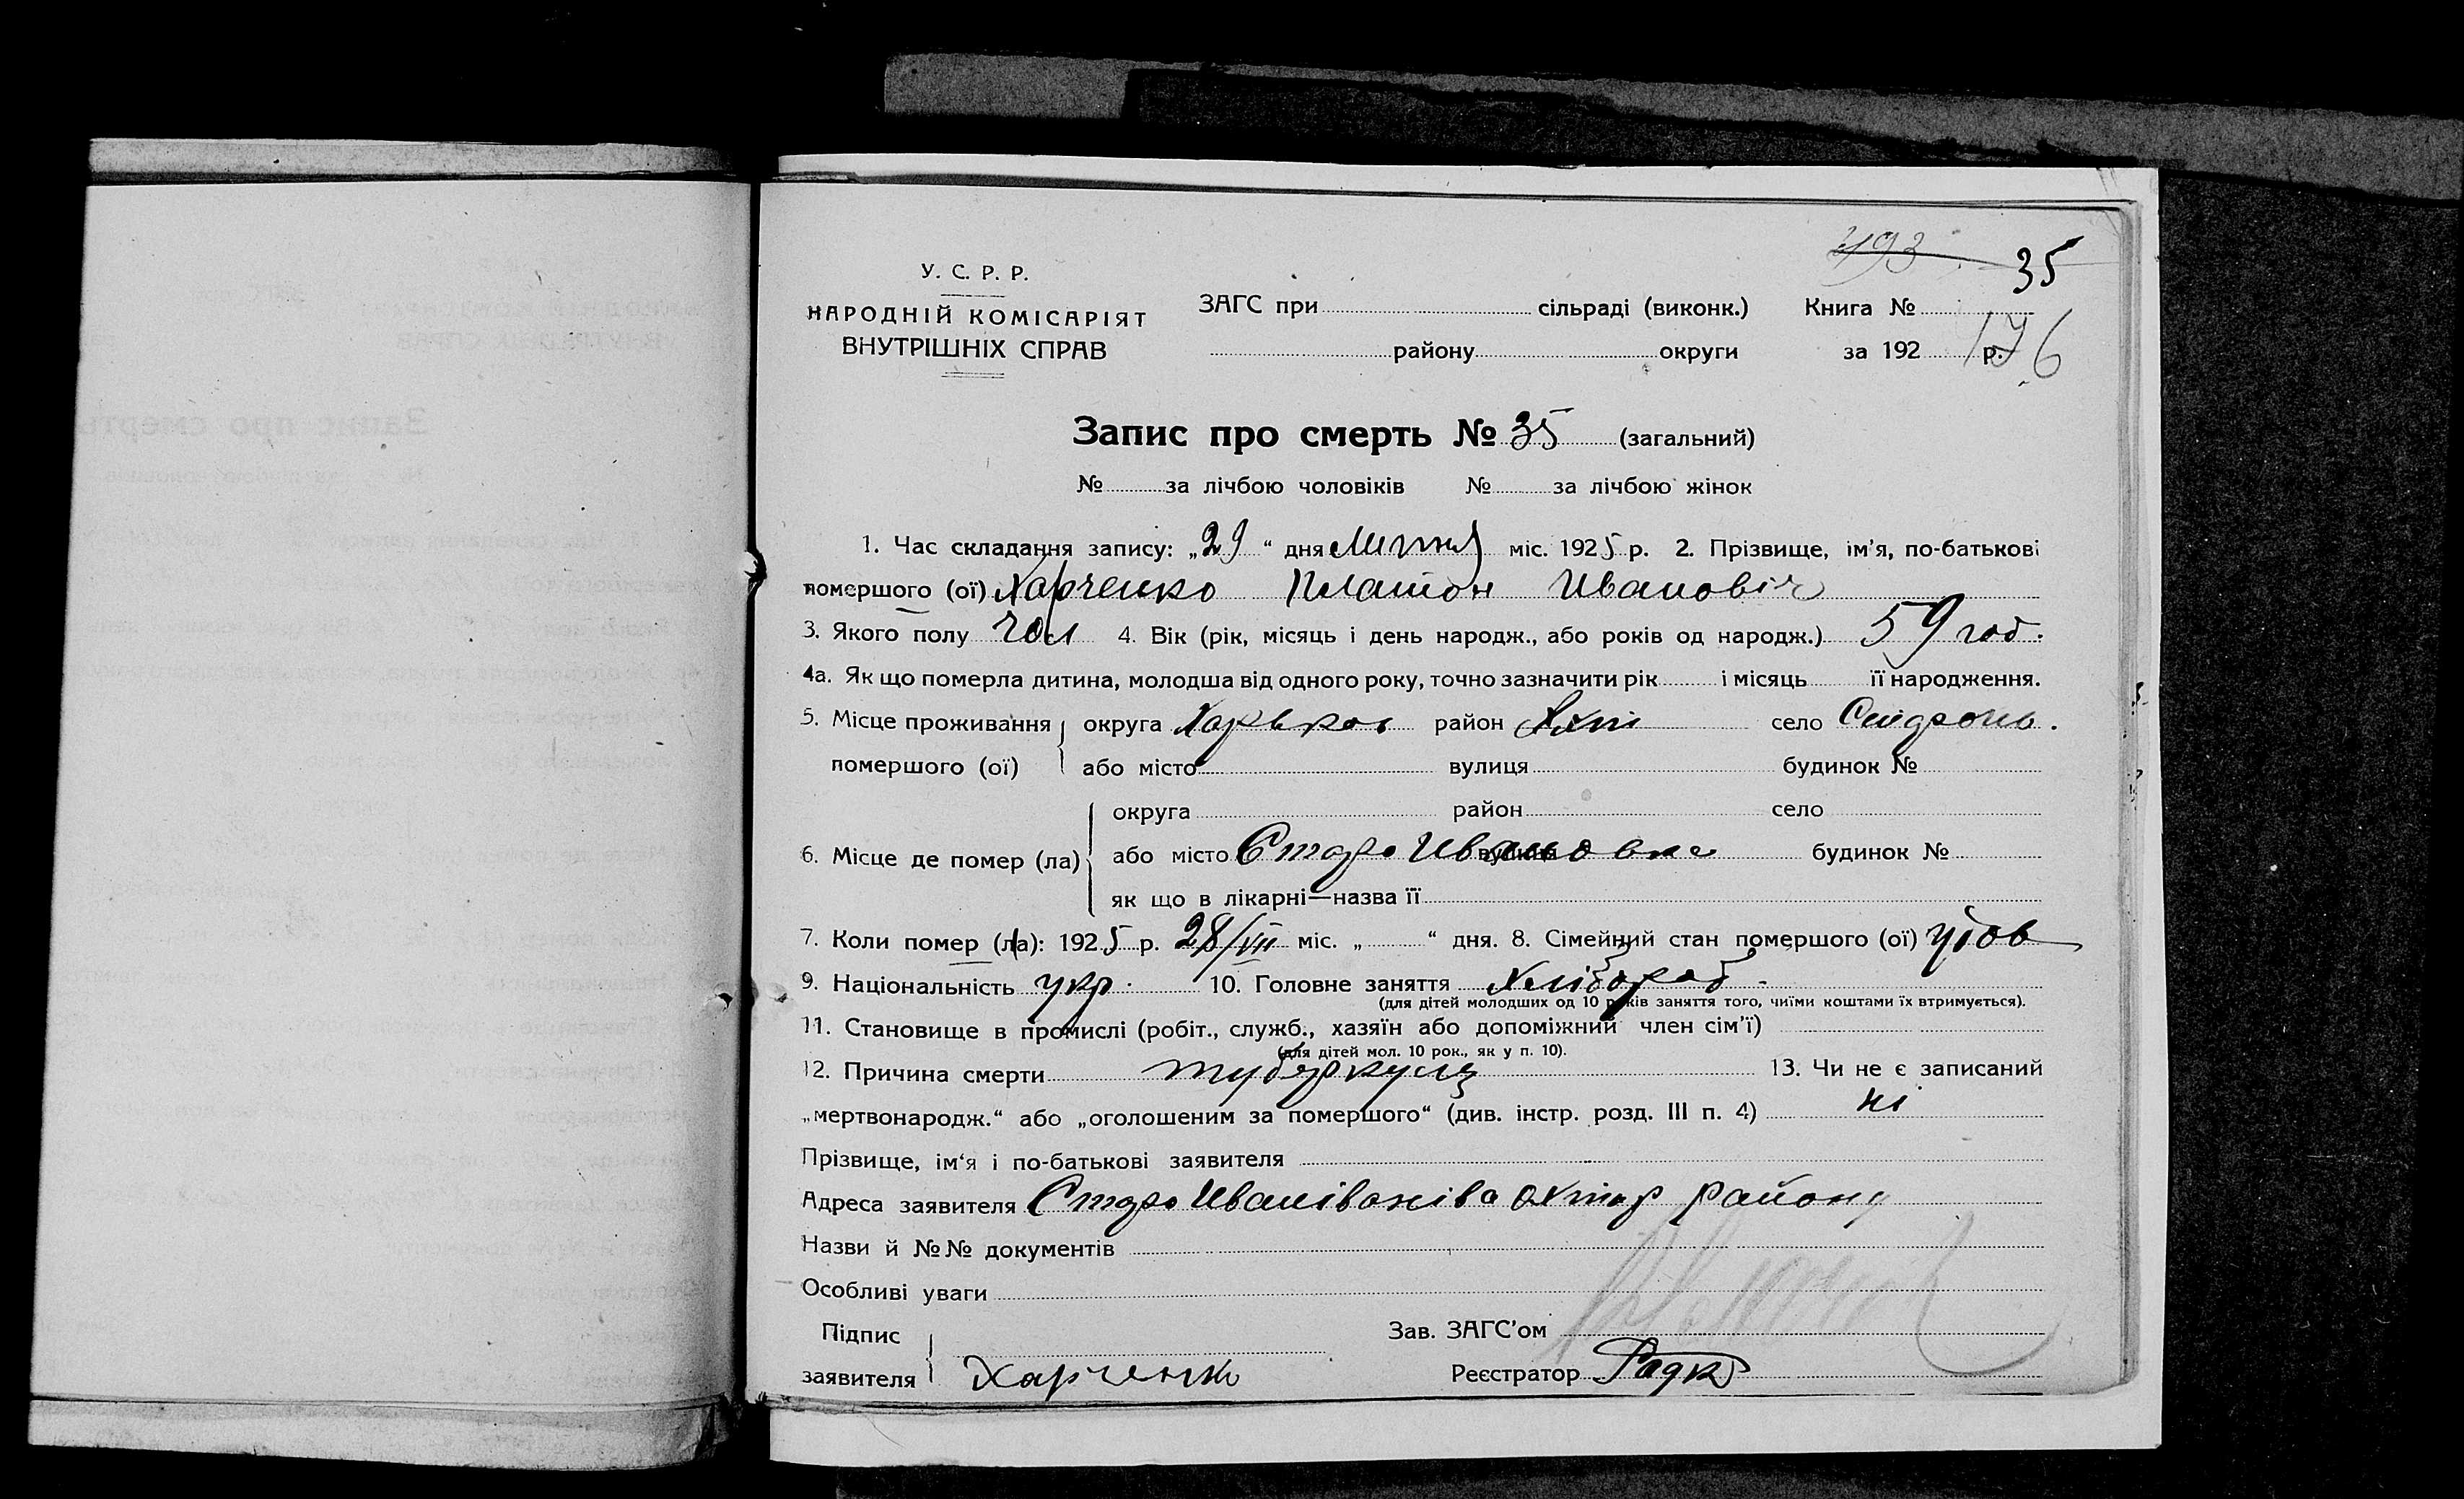 493 35
У. С. Р. Р.
НАРОДНІЙ КОМІСАРІЯТ
ВНУТРІШНІХ СПРАВ
ЗАГС при сільраді (виконк.) Книга №
району округи за 192 р. 176
Запис про смерть № 35 (загальний)
№ за лічбою чоловіків № за лічбою жінок
1. Час складання запису: „29“ дня Липня міс. 1925 р. 2. Прізвище, ім'я, по-батькові
помершого (ої) Харченко Платон Иванович
3. Якого полу Чол 4. Вік (рік, місяць і день народж., або років од народж.) 59 год.
4а. Як що померла дитина, молодша від одного року, точно зазначити рік і місяць її народження.
5. Місце проживання округа Харьков район село
помершого (ої) або місто вулиця будинок №
округа район село
6. Місце де помер (ла) або місто Старо Ивановка вулиця будинок №
як що в лікарні—назва її
7. Коли помер (ла): 1925 р. 28/VII міс. „ “ дня. 8. Сімейний стан помершого (ої) удов
9. Національність укр. 10. Головне заняття Хлібороб.
(для дітей молодших од 10 років заняття того, чиїми коштами їх втримується).
11. Становище в промислі (робіт., служб., хазяїн або допоміжний член сім'ї)
(для дітей мол. 10 рок., як у п. 10).
12. Причина смерти туберкулз 13. Чи не є записаний
„мертвонародж.“ або „оголошеним за помершого“ (див. інстр. розд. III п. 4) ні
Прізвище, ім'я і по-батькові заявителя
Адреса заявителя Старо Охтир району
Назви й №№ документів
Особливі уваги
Підпис Зав. ЗАГС'ом
заявителя Харченко Реєстратор